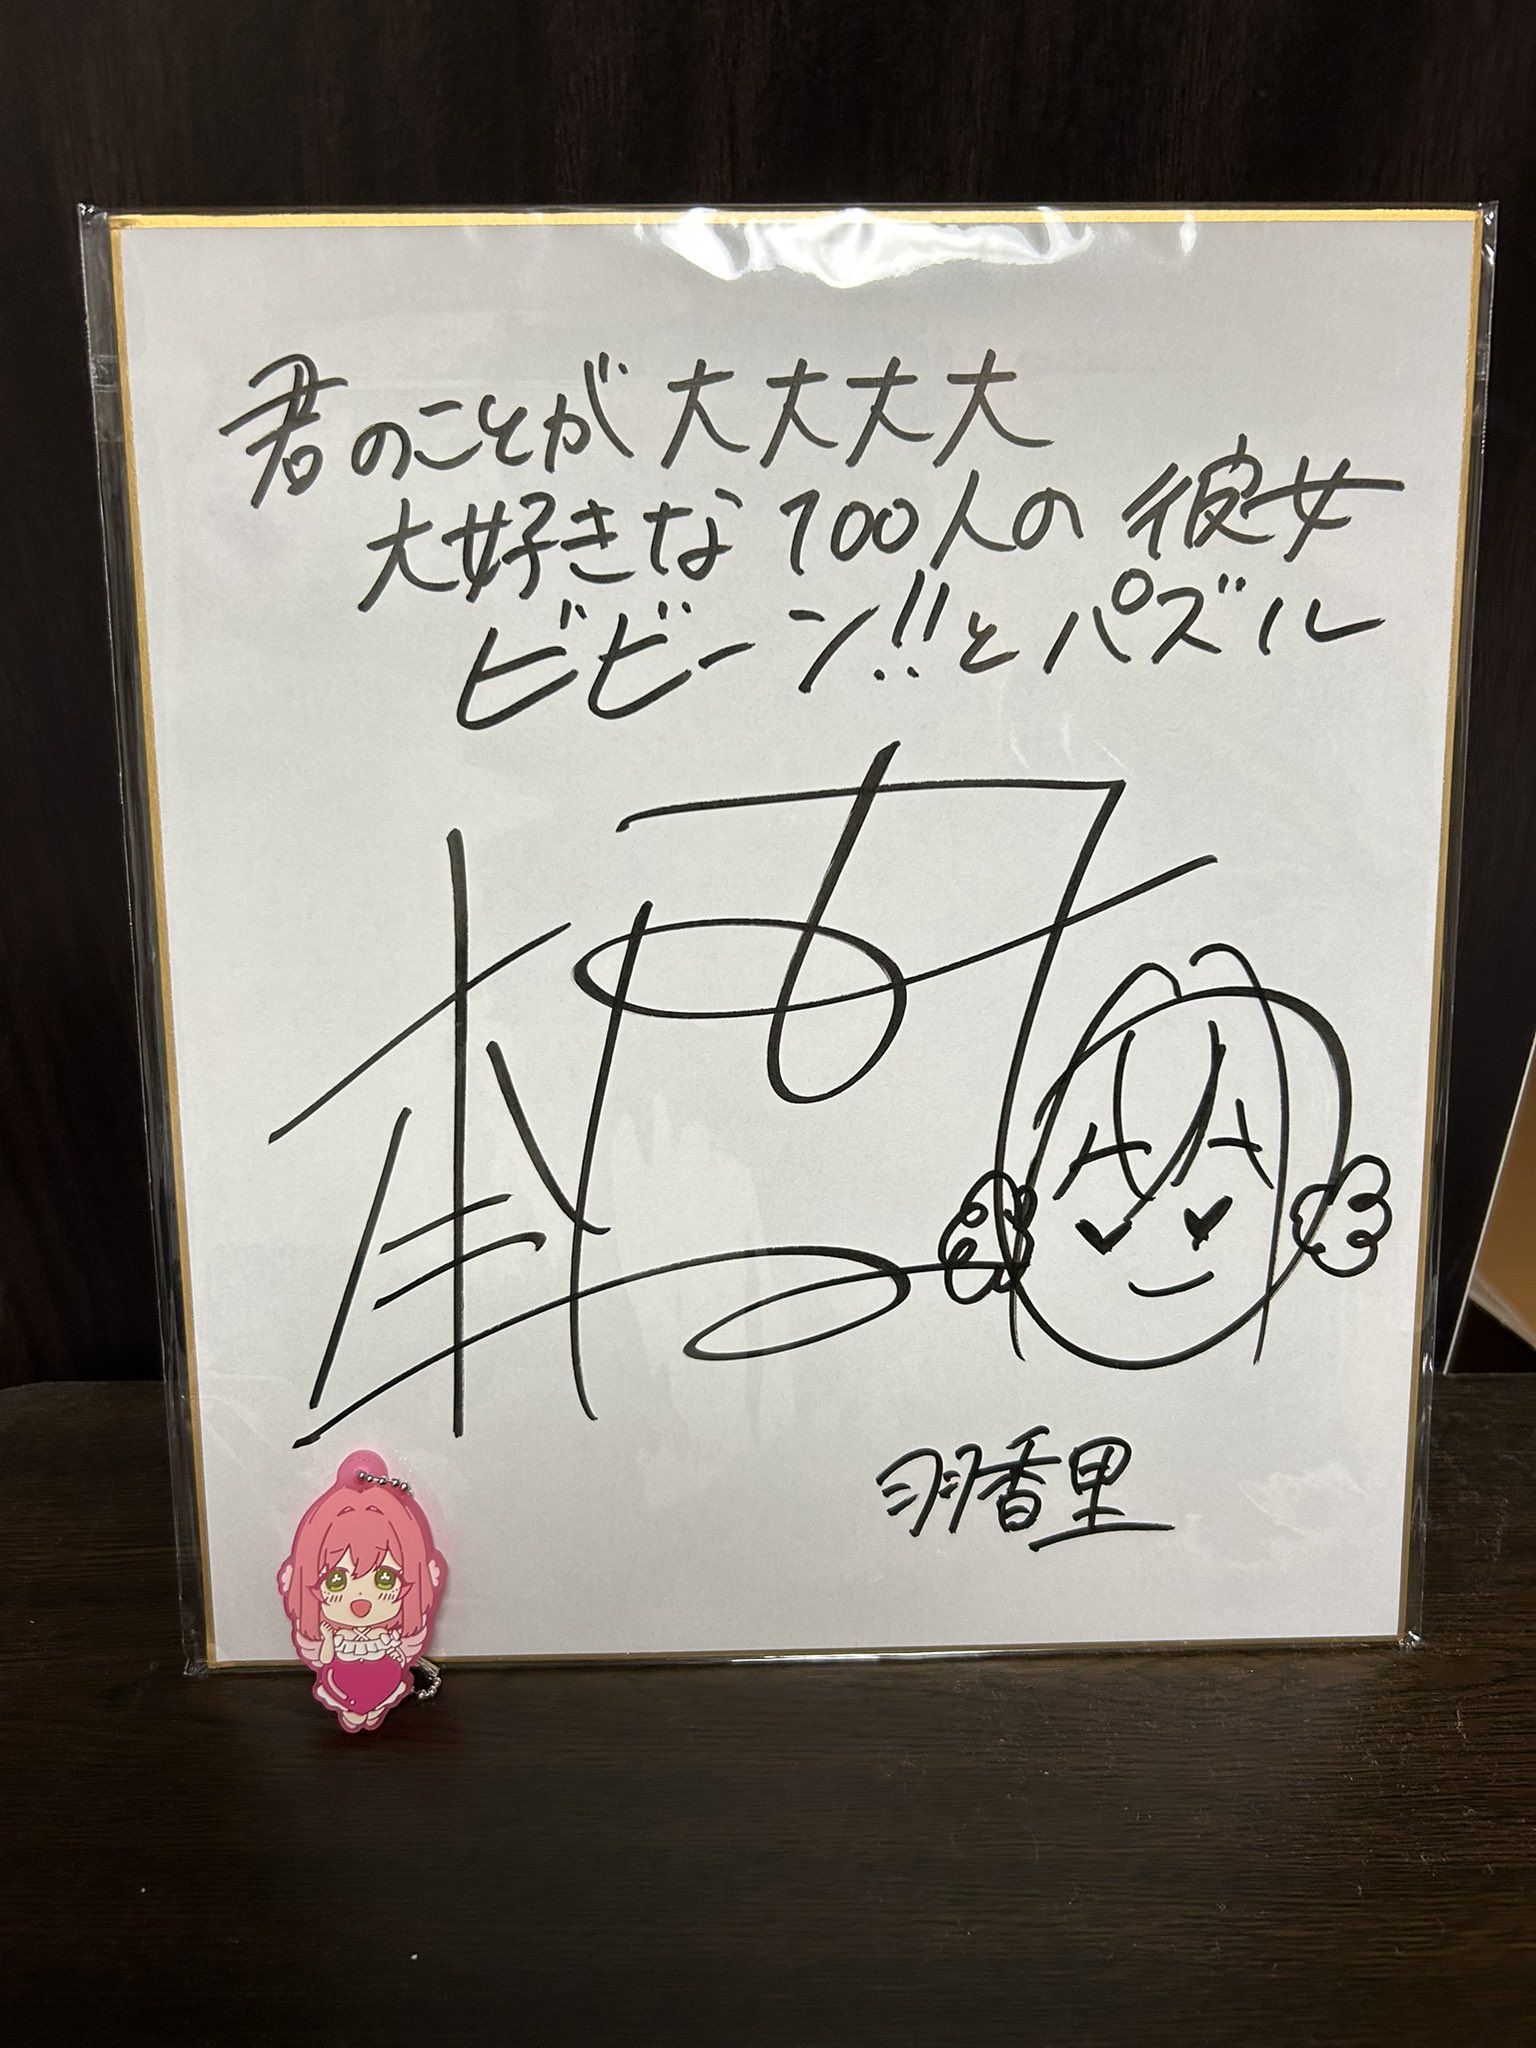 君のことが大大大大
大好きな100人の彼女
ビビーン!!とパズル
羽香里